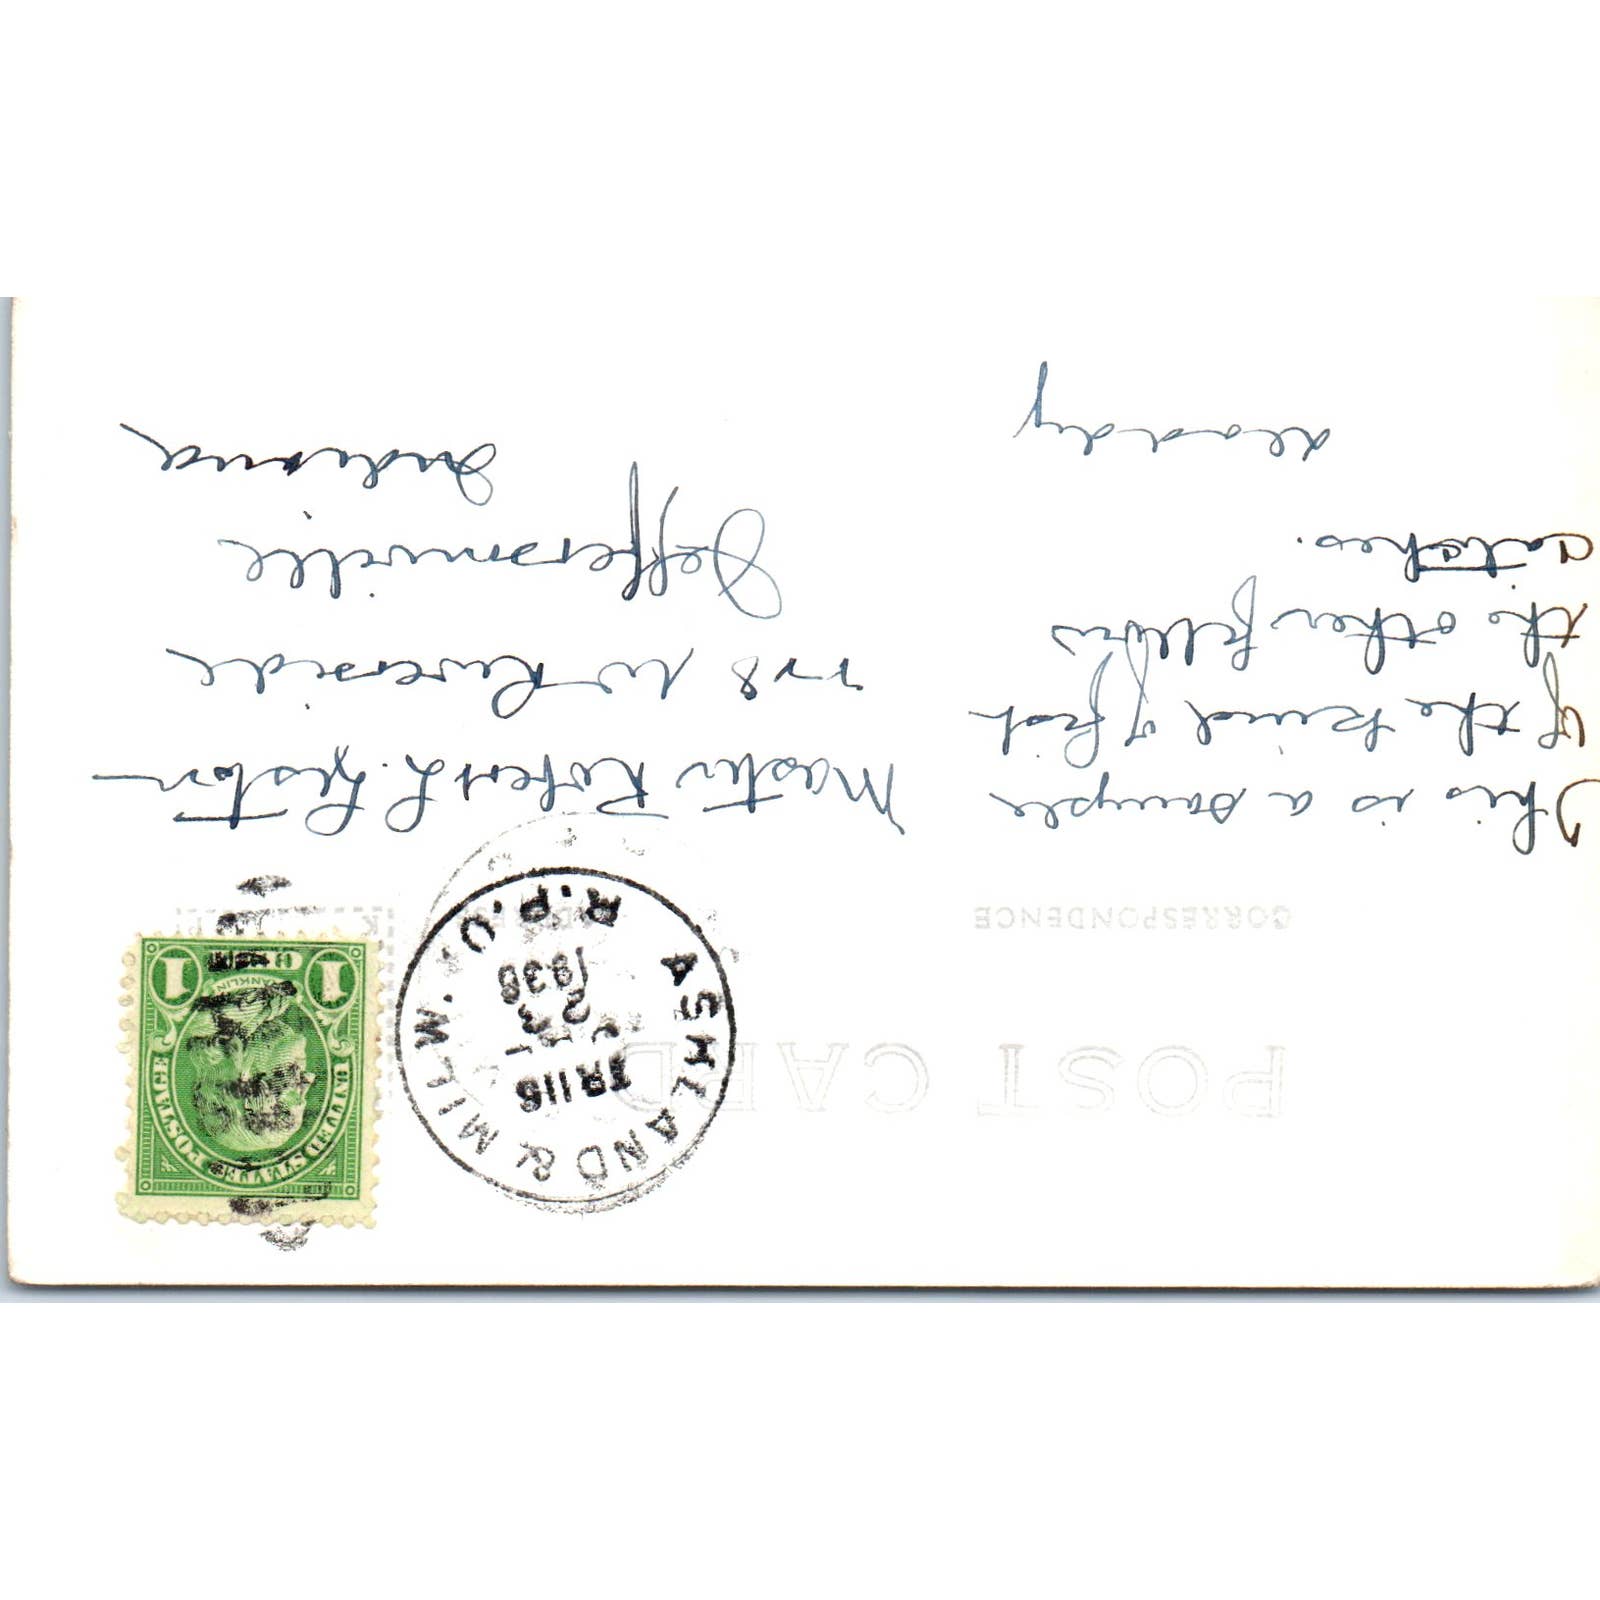 POST CARD
CORRESPONDENCE
This is a sample
of the kind of fish
the other fellow
catches.
daddy
ASHLAND & MILW.
R.P.O.
TR 116
23
1938
UNITED STATES POSTAGE
FRANKLIN
1 1
Master Robert L.
228 W Riverside
Jeffersonville
Indiana